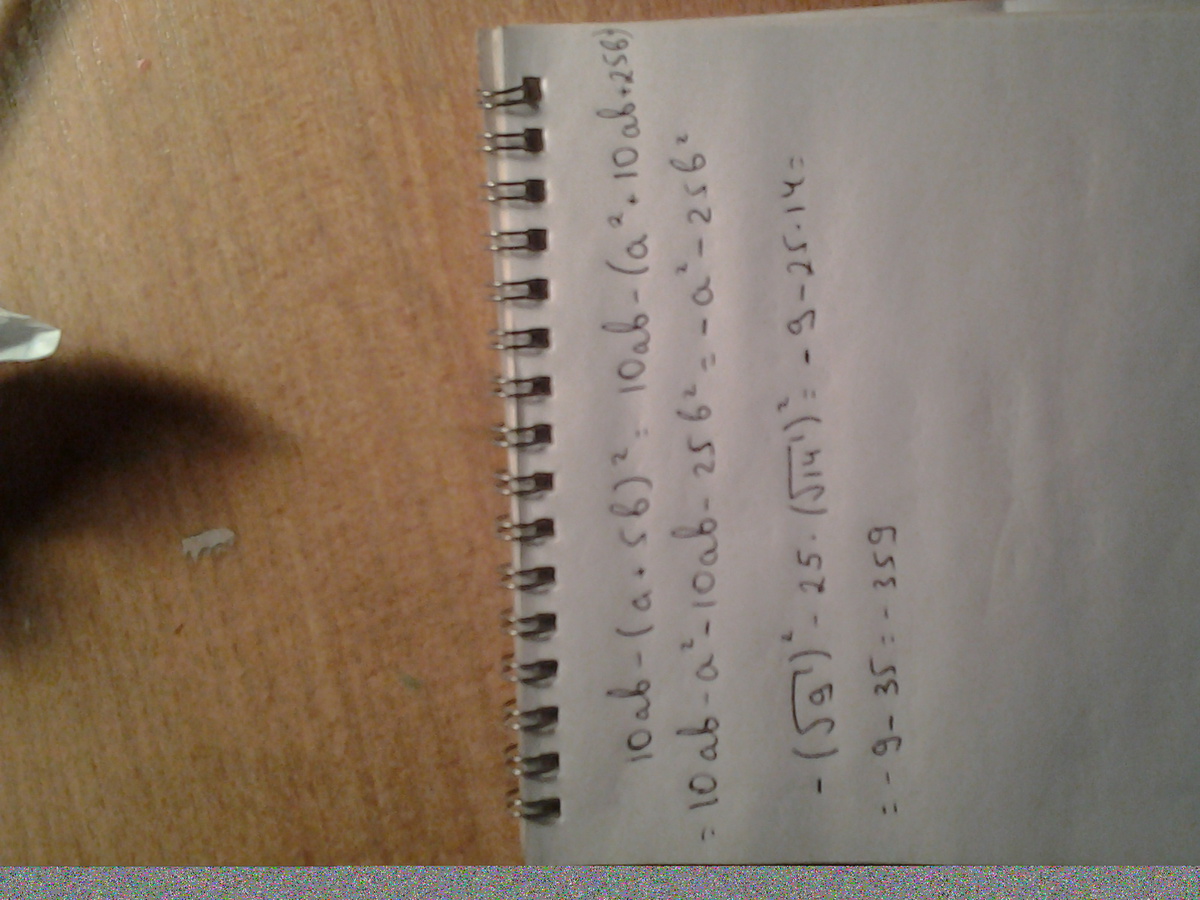 10ab - (a + 5b)² = 10ab - (a² + 10ab + 25b²)
= 10ab - a² - 10ab - 25b² = - a² - 25b²
- (√9)² - 25 · (√14)² = - 9 - 25 · 14 =
= - 9 - 35 = - 359